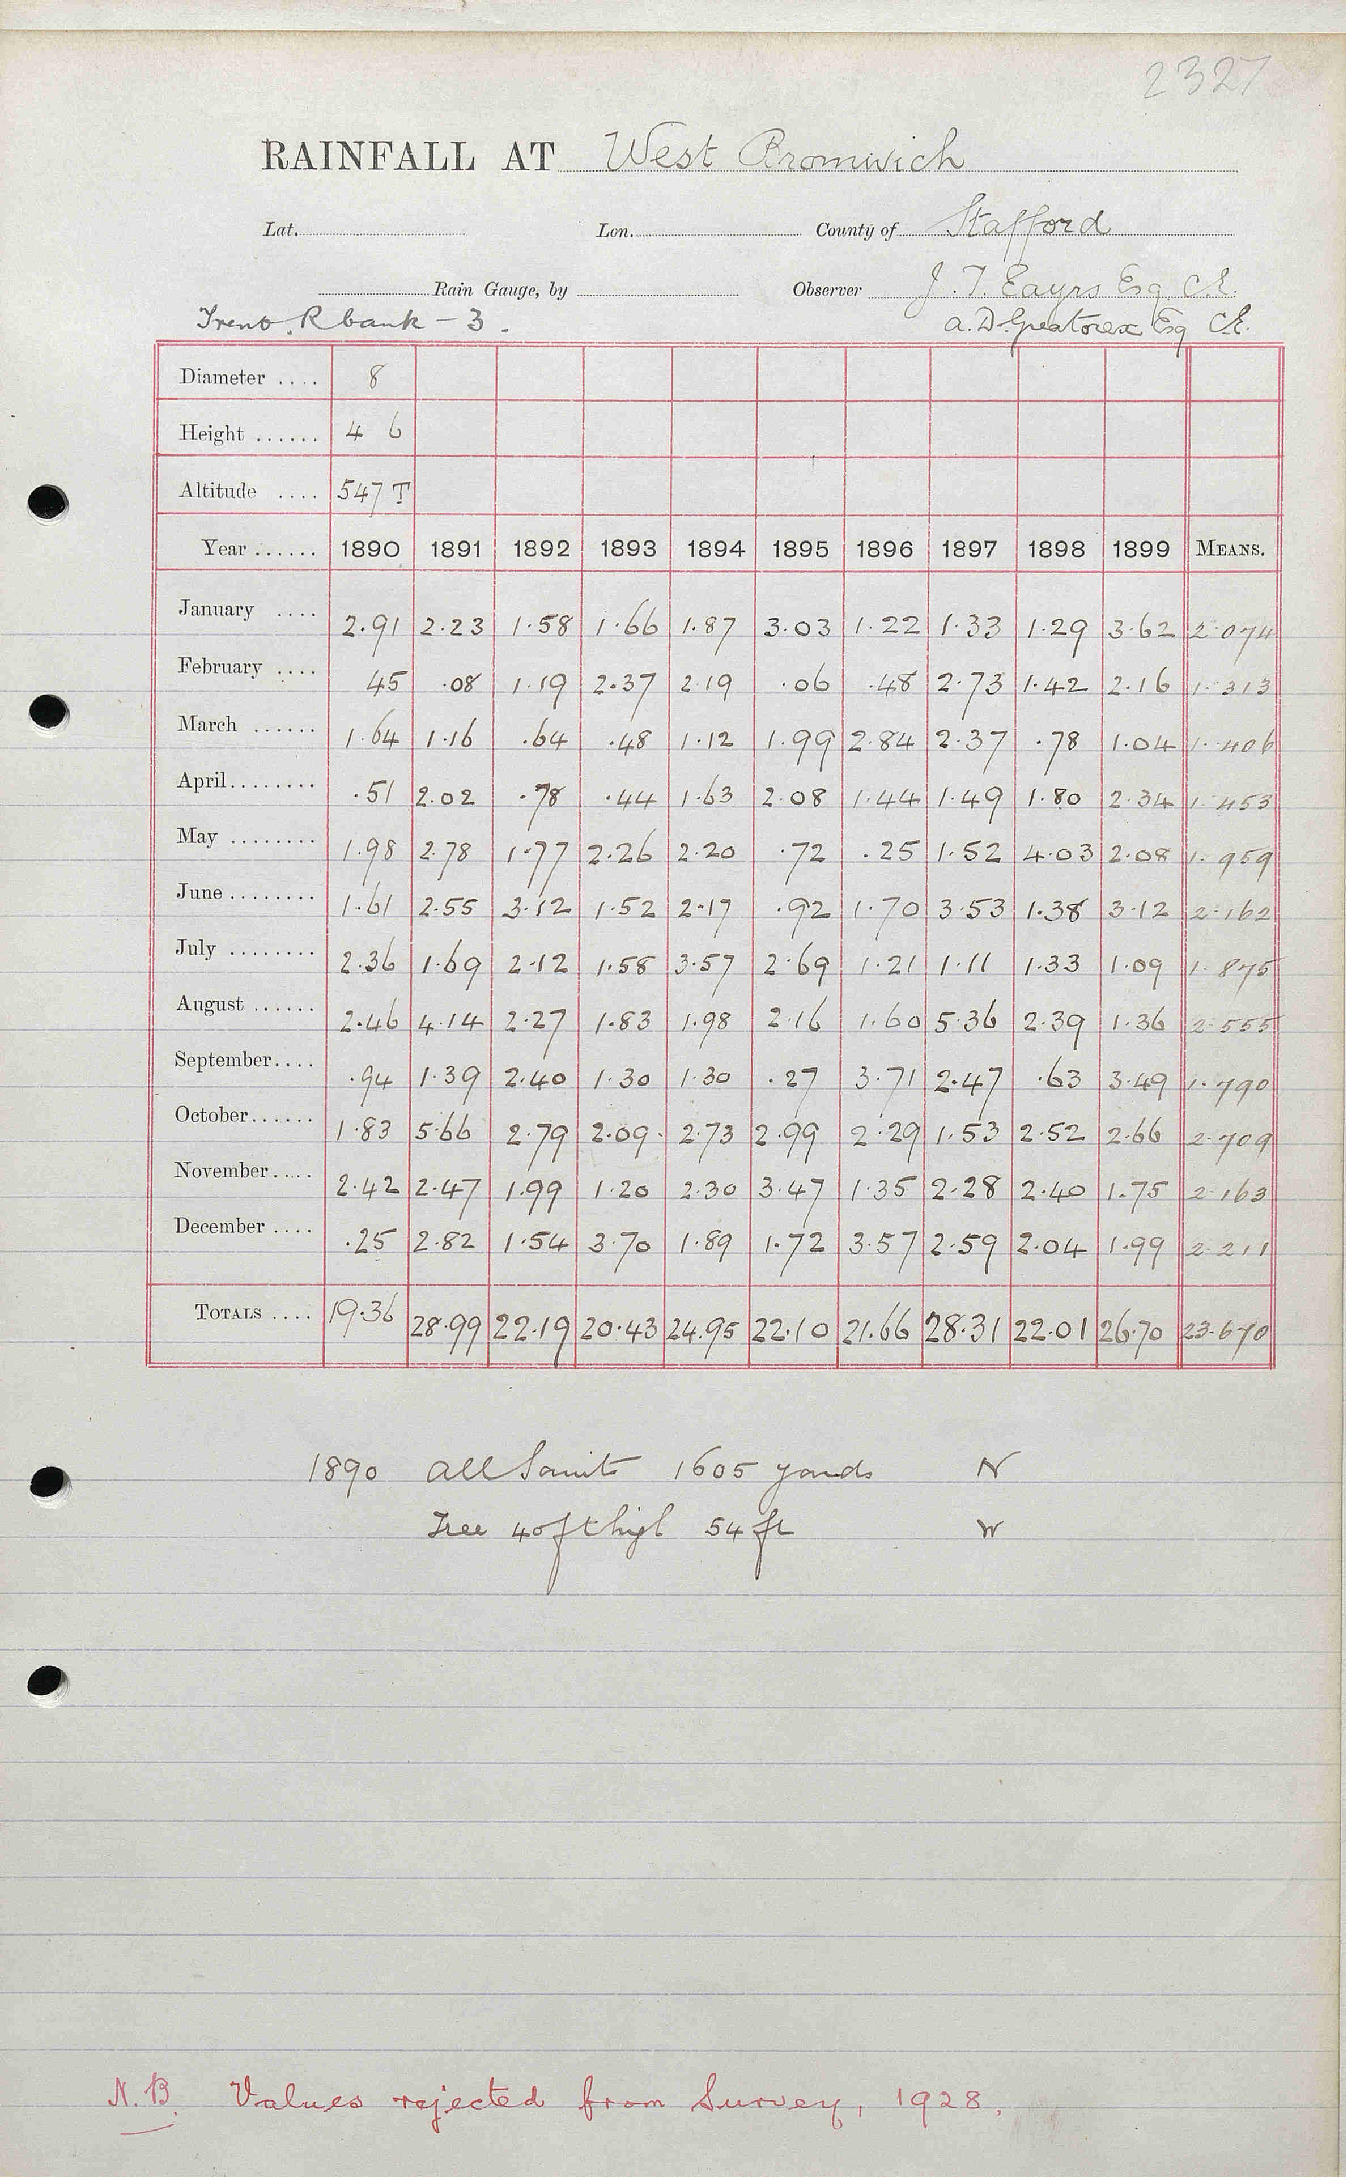 2327
RAINFALL AT West Bromwich
Lat. Lon. County of Stafford
Rain Gauge, by Observer J. T. Eayrs Esq. C.E.
Trent. R bank - 3. A. D. Greatorex Esq C.E.
Diameter .... 8
Height ...... 4 6
Altitude .... 547 T
Year ...... 1890 1891 1892 1893 1894 1895 1896 1897 1898 1899 MEANS.
January .... 2.91 2.23 1.58 1.66 1.87 3.03 1.22 1.33 1.29 3.62 2.074
February .... 45 .08 1.19 2.37 2.19 .06 .48 2.73 1.42 2.16 1.313
March ...... 1.64 1.16 .64 .48 1.12 1.99 2.84 2.37 .78 1.04 1.406
April........ .51 2.02 .78 .44 1.63 2.08 1.44 1.49 1.80 2.34 1.453
May ........ 1.98 2.78 1.77 2.26 2.20 .72 .25 1.52 4.03 2.08 1.959
June ........ 1.61 2.55 3.12 1.52 2.17 .92 1.70 3.53 1.38 3.12 2.162
July ........ 2.36 1.69 2.12 1.58 3.57 2.69 1.21 1.11 1.33 1.09 1.875
August ...... 2.46 4.14 2.27 1.83 1.98 2.16 1.60 5.36 2.39 1.36 2.555
September.... .94 1.39 2.40 1.30 1.30 .27 3.71 2.47 .63 3.49 1.790
October...... 1.83 5.66 2.79 2.09. 2.73 2.99 2.29 1.53 2.52 2.66 2.709
November.... 2.42 2.47 1.99 1.20 2.30 3.47 1.35 2.28 2.40 1.75 2.163
December .... .25 2.82 1.54 3.70 1.89 1.72 3.57 2.59 2.04 1.99 2.211
TOTALS .... 19.36 28.99 22.19 20.43 24.95 22.10 21.66 28.31 22.01 26.70 23.670
1890 All Saints 1605 yards N
Tree 40ft high 54 ft W
N.B. Values rejected from Survey, 1928.